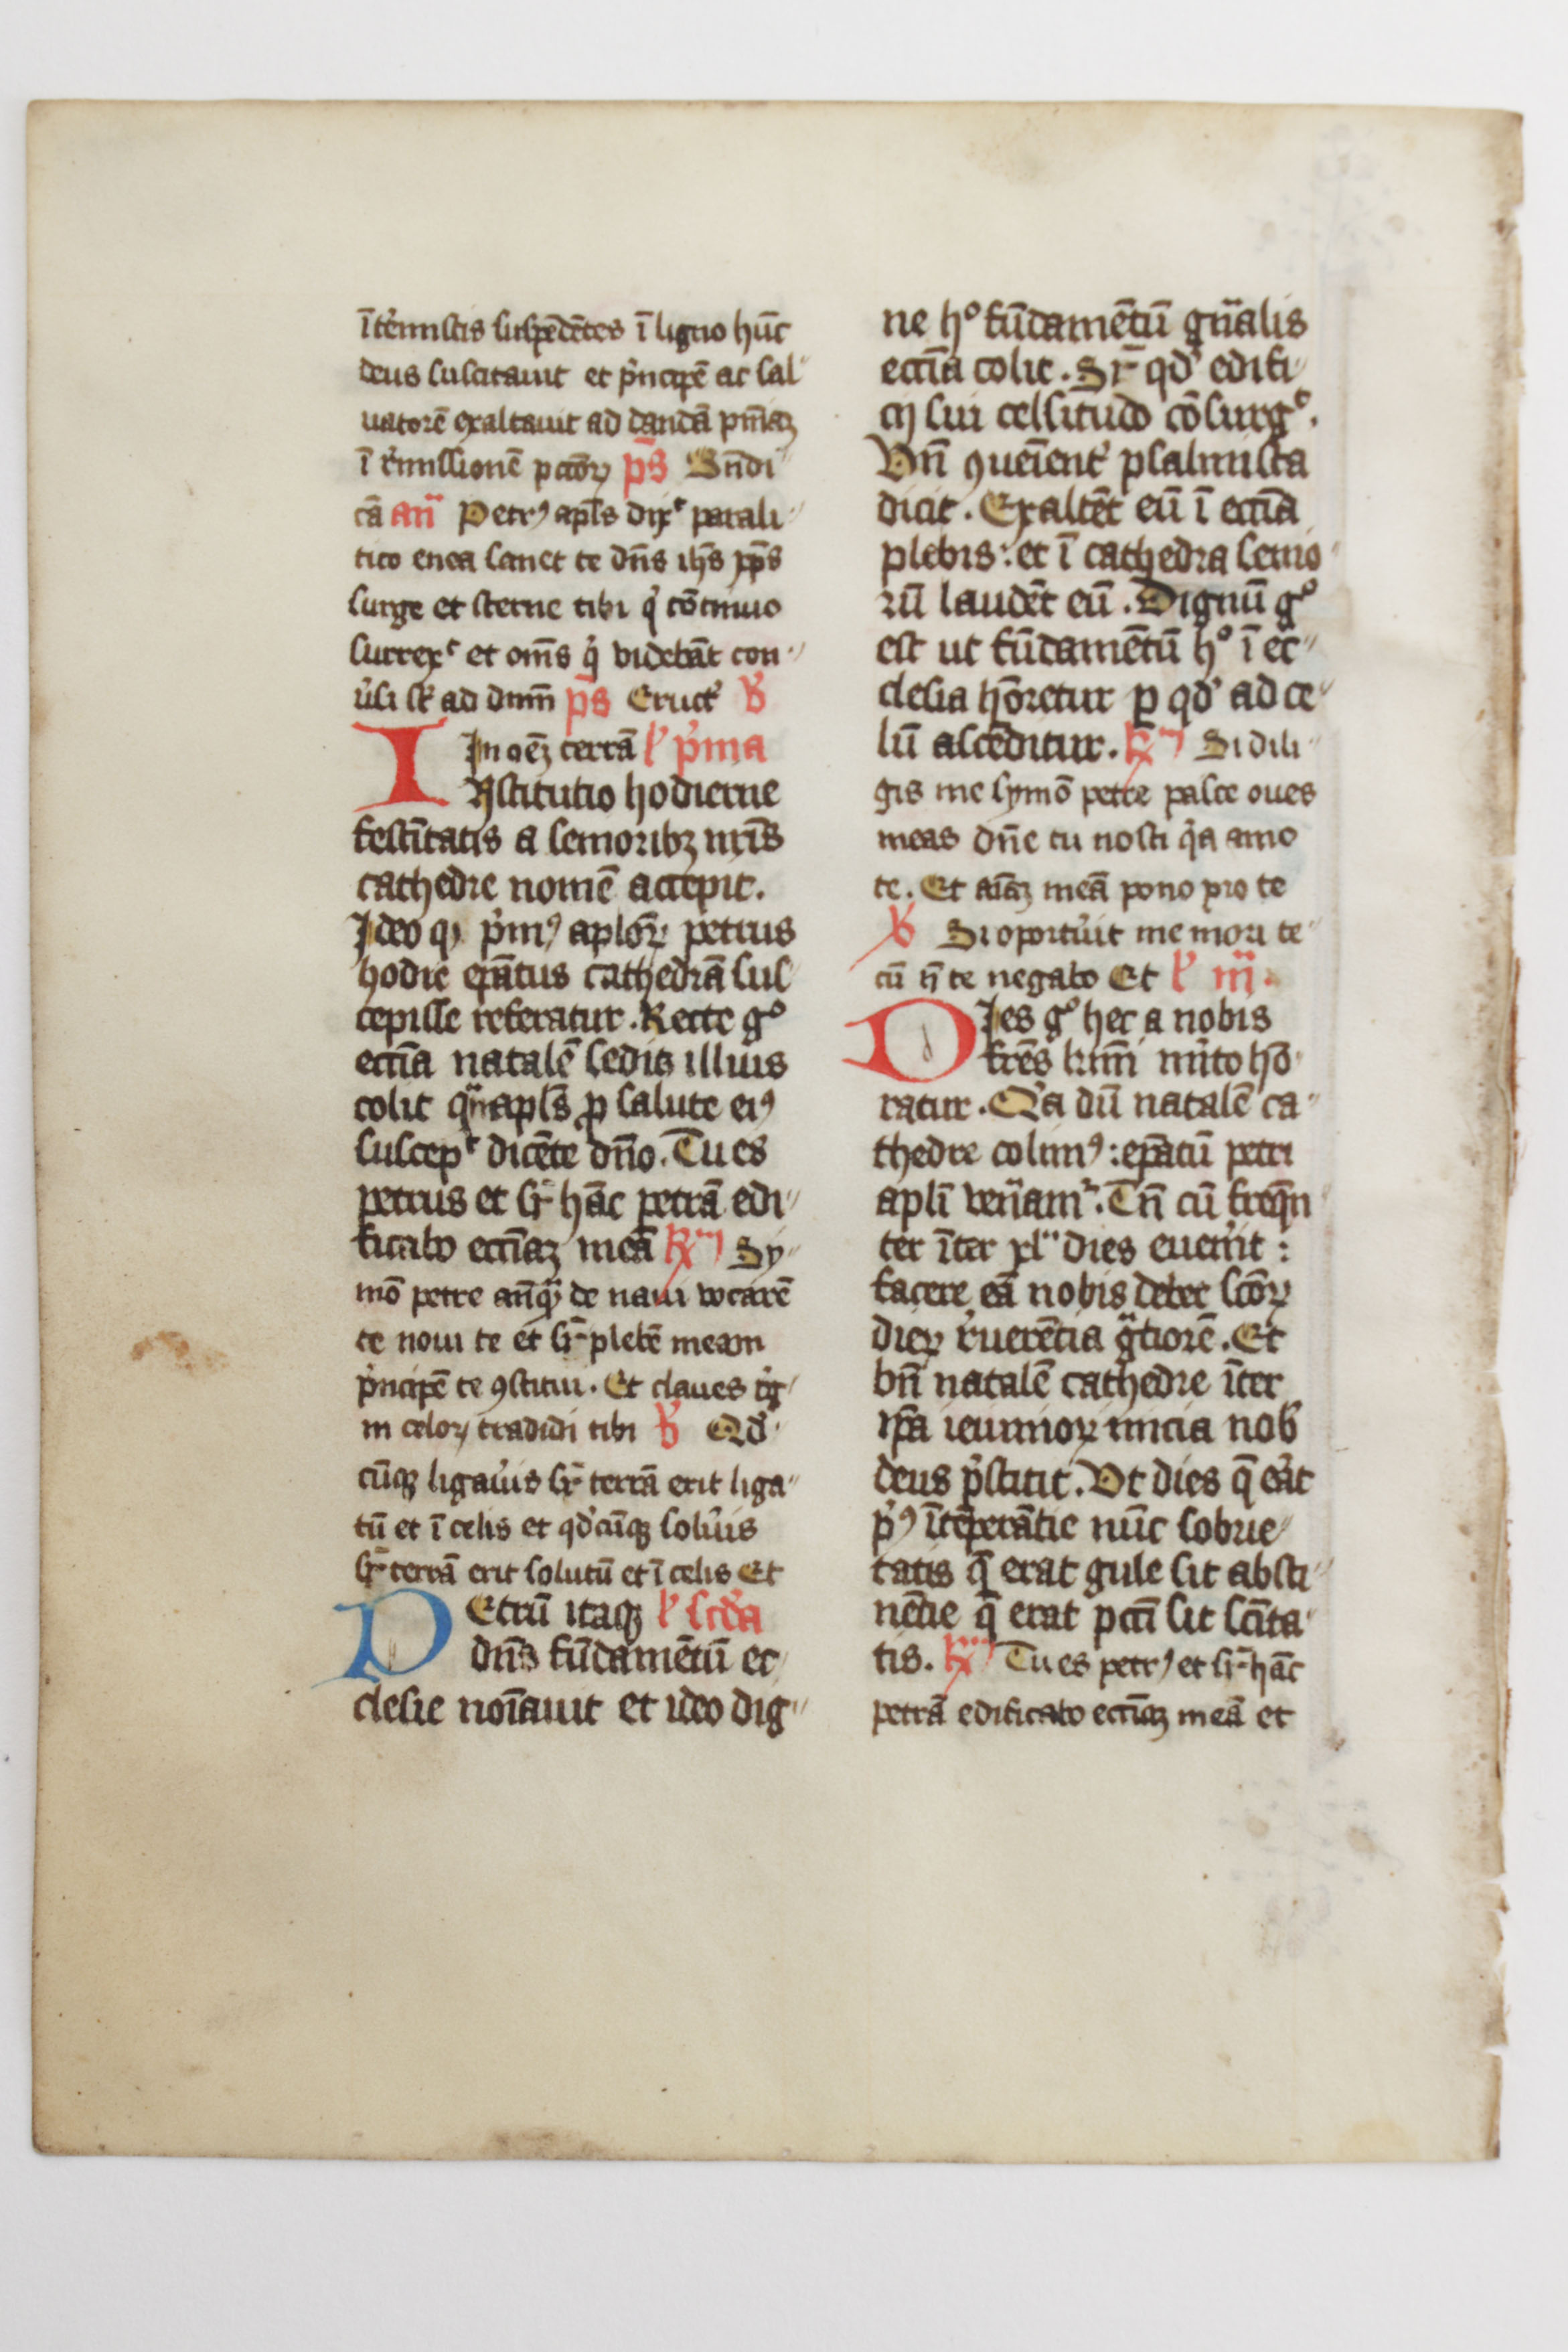 ī t̉emistis suspēdētes ī ligno hūc
deus suscitauit et p̉ncipē ac sal
uatorē exaltauit ad dandā pn̄iaꝫ
ī r̉missionē pccōꝝ p̄s Bn̄di
cā an̄ Petrꝰ apl̄s dixͭ parali
tico enea sanet te dn̄s ih̄s xp̄s
surge et sterne tibi q̉ cōtinuo
surrexͭ et om̄s q̉ videbāt con
ūsi sͭ ad dnm̄ p̄s Eruct̉ v̉
In oēꝫ terrā l̓ p̉ma
INstitutio hodierne
festītatis a senioribꝫ nr̄is
cathedre nomē accepit.
Ideo qꝫ p̉mꝰ aplōꝝ petrus
hodie ep̄atus cathedrā sus
cepisse referatur. Recte gͦ
eccīa natalē sedis illius
colit quā apl̄s ꝓ salute eiꝰ
suscepͭ dicēte dn̄o. Tu es
petrus et sr̄ hāc petrā edi
ficabo ecc̄iaꝫ meā ꝶ Sy
mō petre an̄qͣꝫ de naui vocarē
te noui te et sr̄ plebē meam
p̉ncipē te ꝯstitui. Et claues rg̉
ni celoꝝ tradidi tibi v̉ Qd̉
cūqꝫ ligau̓is sr̄ terrā erit liga
tū et ī celis et qd̉cūqꝫ solu̓is
sr̄ terrā erit solutū et ī celis Et
PEtrū itaqꝫ l̓ scd̉a
dn̄s fūdamētū ec
clesie noīauit et ideo dig
ne hͦ fūdamētū gn̄alis
eccīa colit. Sr̄ qd̉ edifi
cij sui celsitudo cōsurgͭ.
Vn̄ ꝯueīent̉ psalmista
dicit. Exaltēt eū ī eccīa
plebis: et ī cathedra senio
rū laudēt eū. Dignū gͦ
est ut fūdamētū hͦ ī ec
clesia hōretur ꝑ qd̉ ad ce
lū ascēditur. ꝶ Si dili
gis me symō petre pasce oues
meas dn̄e tu nosti q̉a amo
te. Et aīaꝫ meā pono pro te
v̉ Si oportu̓it me mori te
cū n̄ te negabo Et l̓ iij.
DIes gͦ hec a nobis
frēs kmī m̉ito hō
ratur. Q̉a dū natalē ca
thedre colimꝰ: ep̄atū petri
apl̄i ven̄amͬ. Tn̄ cū freq̄n
ter īter xlͣ dies euen̉it:
facere eā nobis debet scōꝝ
dieꝝ r̉uerētia gͣtiorē. Et
bn̄ natalē cathedre īter
ip̄a ieiunioꝝ inicia nob̉
deus p̉stitit. Vt dies q̄ eāt
p̉ꝰ ītēperātie nūc sobrie
tatis q̄ erat gule sit absti
nētie q̄ erat pcc̄i sit scīta
tis. ꝶ Tu es petrꝰ et sr̄ hāc
petrā edificabo ecc̄iaꝫ meā et